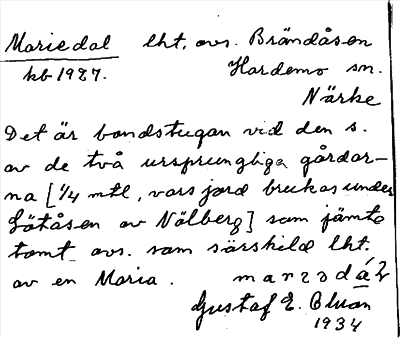 Mariedal lht. avs. Brändåsen
kb 1927. Hardemo sn.
Närke
Det är bondstugan vid den s.
av de två ursprungliga gårdar-
na [1/4 mtl, vars jord brukas under
Götåsen av Nölberg] som jämte
tomt avs. som särskild lht.
av en Maria.
Gustaf E. Bluon
1934